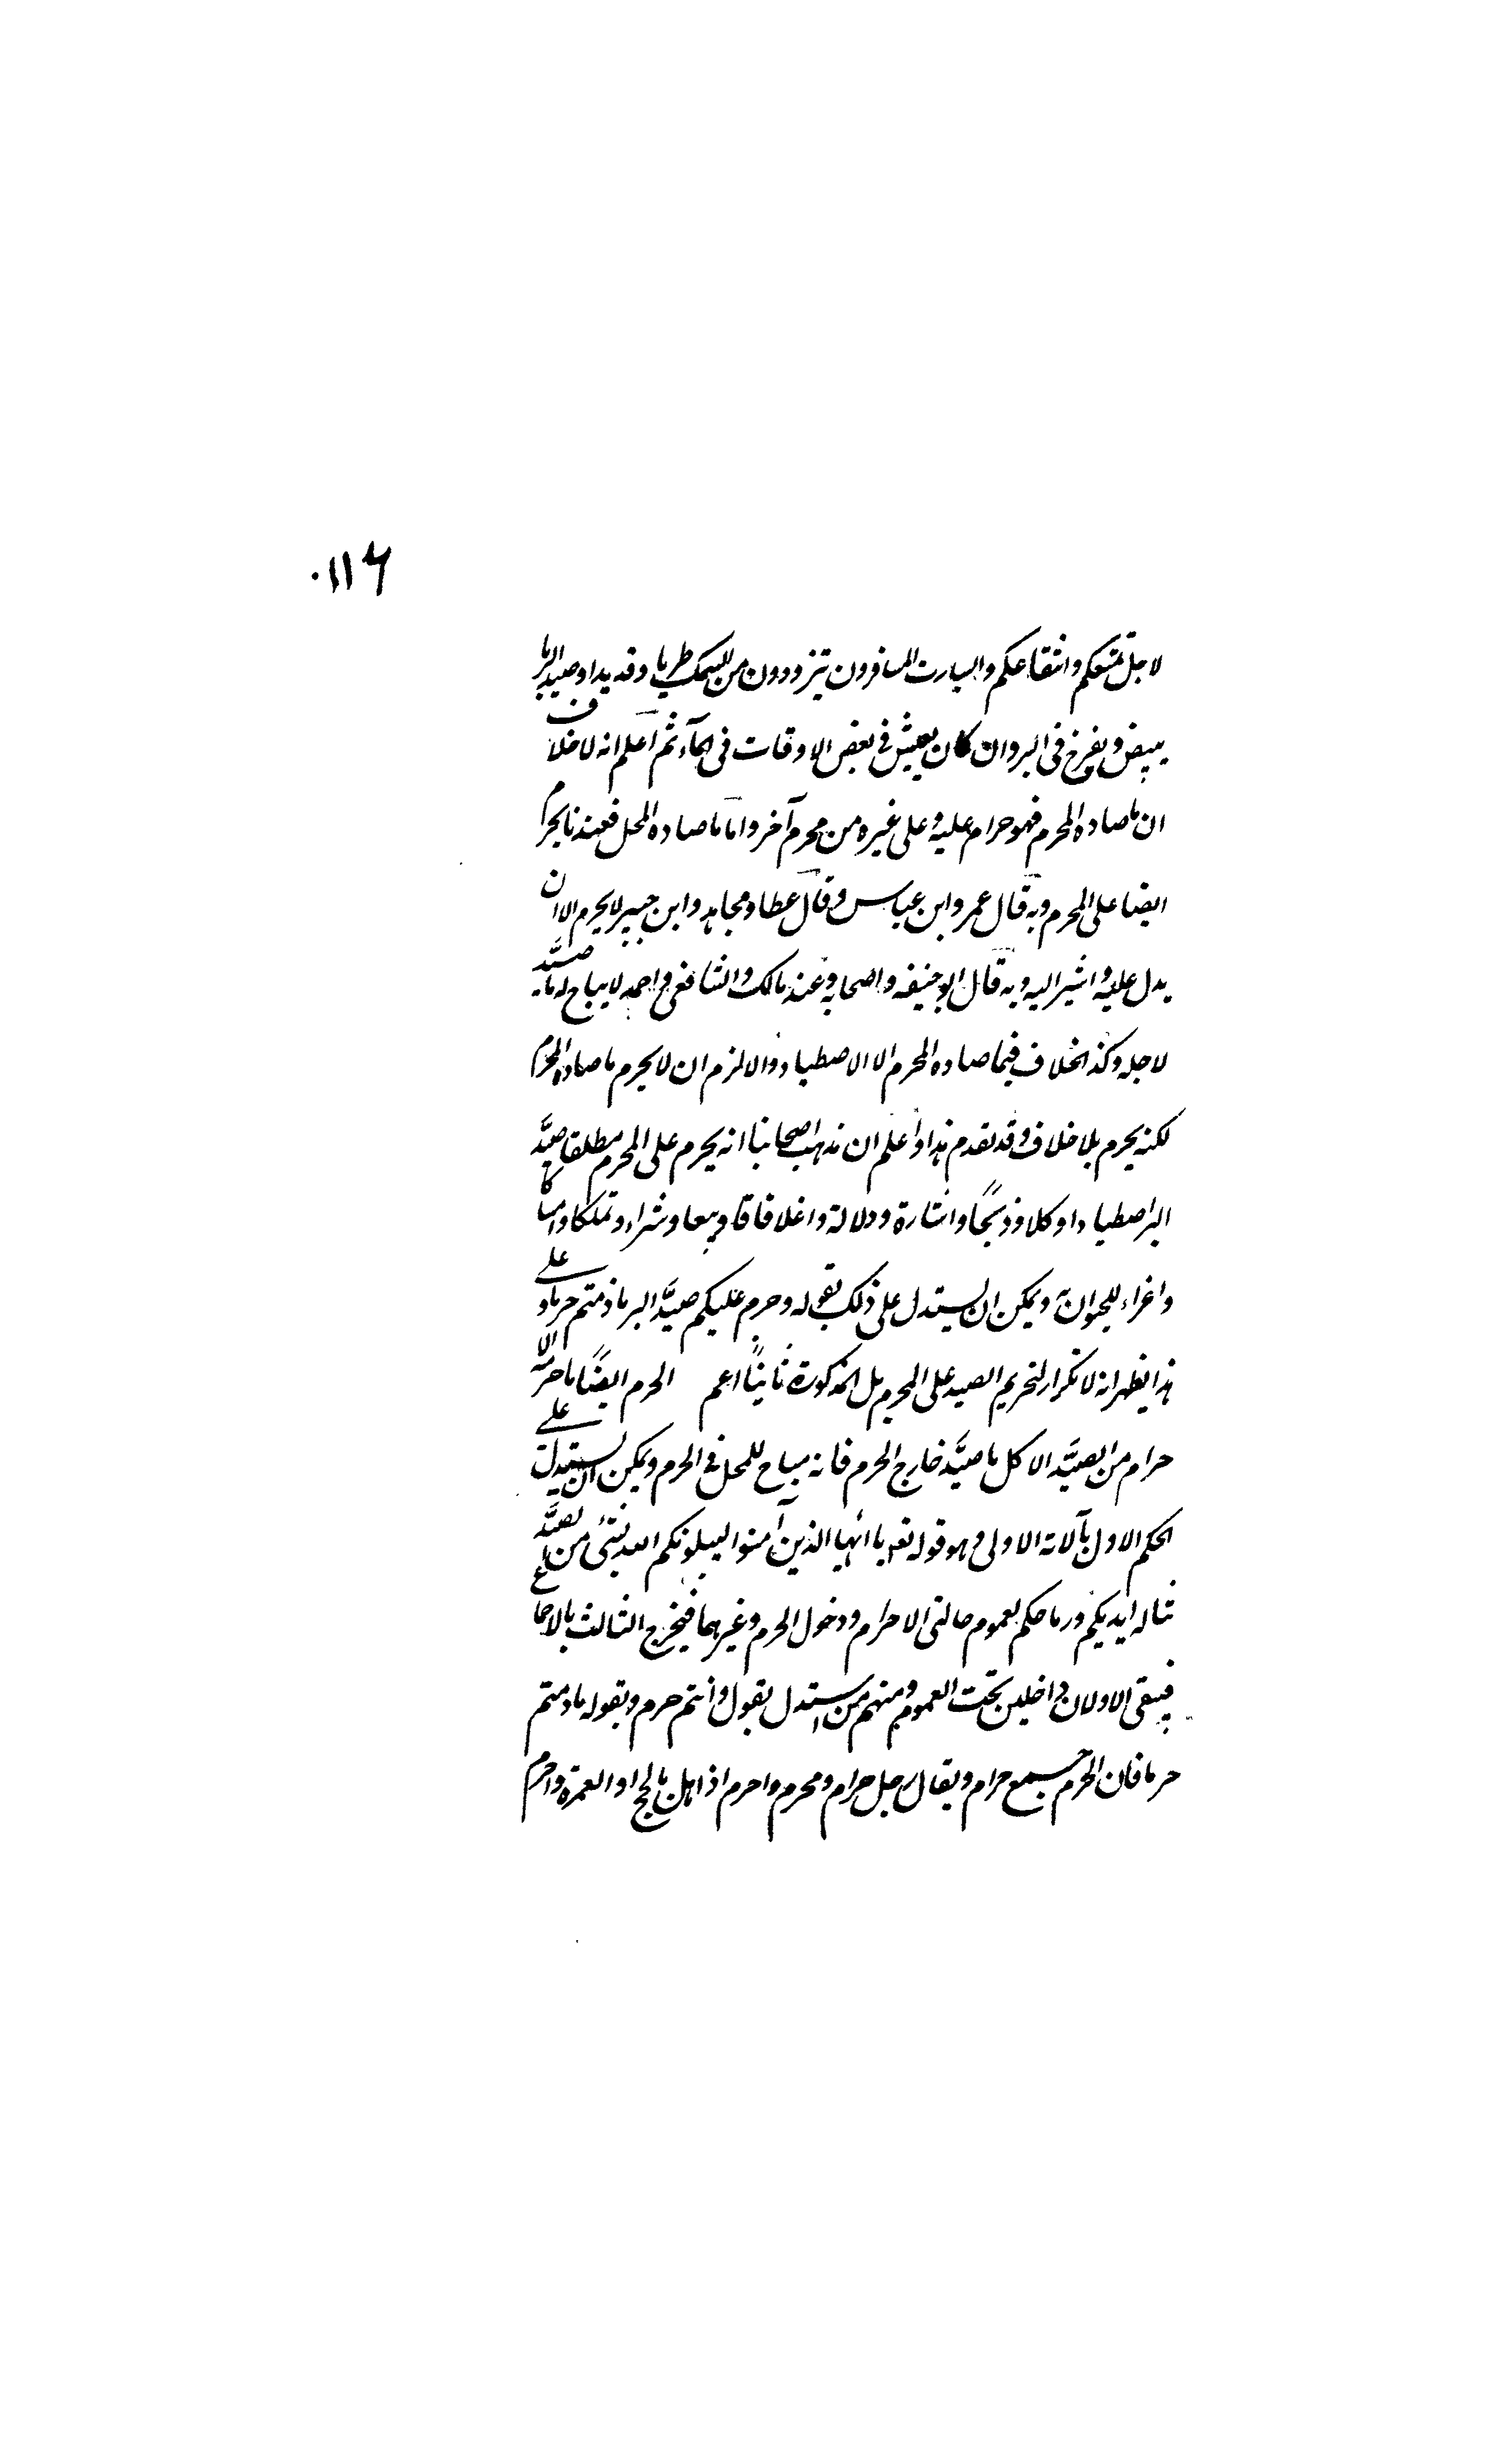 ١١٦
لاجل تمتعكم وانتفاعكم والسيارت المسافرون يتزودون من السمك طريا وقديدا وصيد البر ما
يبيض ويفرخ فى البر وان كان يعيش فى بعض الاوقات فى المآء ثم اعلم انه لا خلاف
ان ما صاده المحرم فهو حرام عليه وعلى غيره من محرم آخر واما ما صاده المحل فعندنا يحرم
ايضا على المحرم وبه قال عمر وابن عباس وقال عطا ومجاهد وابن جبير لا يحرم الا ان
يدل عليه او اشير اليه وبه قال ابو حنيفه واصحابه وعند مالك والشافعى واحمد لا يباح له ما صيد
لاجله وكذ الخلاف فيما صاده المحرم الا الاصطياد والا لزم ان لا يحرم ما صاده المحرم
لكنه يحرم بلا خلاف وقد تقدم هذا واعلم ان مذهب اصحابنا انه يحرم على المحرم مطلقا صيد
البر اصطيادا وكلا وذبحًا واشارة ودلالة واغلاقا وبيعا وشراء وتملكا وامساكا
واغراء للحيوان به ويمكن ان يستدل على ذلك بقوله وحرم عليكم صيد البر ما دمتم حرما وعلى
هذا يظهر انه لا تكرار لتحريم الصيد على المحرم بل المذكورة ثانيًا اعم الحرم ايضًا ما حرمه الا
حرام من الصيد الا كل ما صيد خارج الحرم فانه مباح للمحل فى الحرم ويمكن ان يستدل على
الحكم الاول بآلاية الاولى وهو قوله تعه يا ائها الذين آمنوا ليبلونكم الله بشئ من الصيد
تناله ايديكم ورماحكم لعموم حالتى الاحرام ودخول الحرم وغيرهما فيخرج الثالث بالاجماع
فيبقى الاولان داخلين تحت العموم ومنهم من استدل بقول وانتم حرم وبقوله ما دمتم
حرما فان الحرم جمع حرام ويقال رجل حرام ومحرم واحرم اذا اهل بالحج او العمرة واحرم